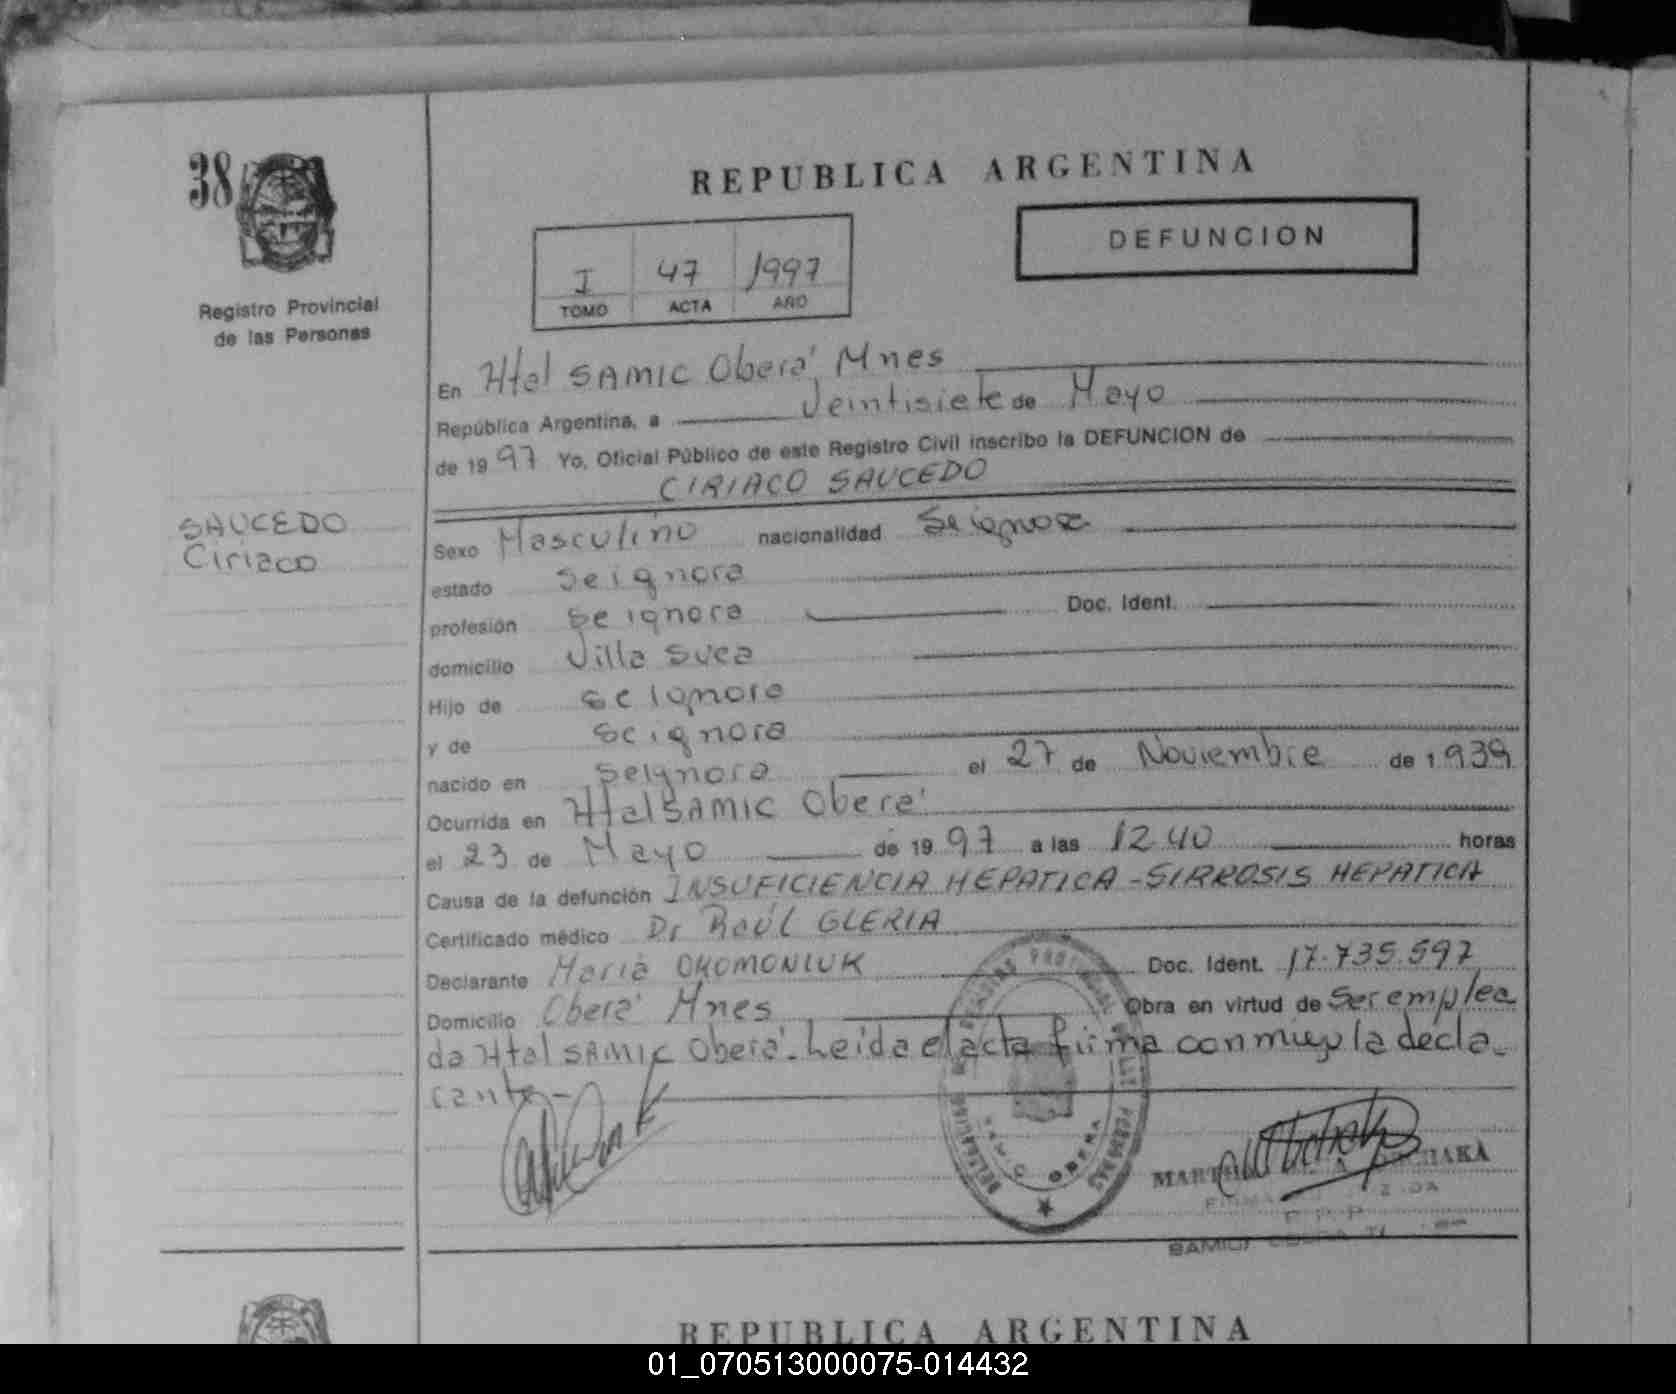 38
REPUBLICA ARGENTINA
DEFUNCION
I 47 1997
TOMO ACTA AÑO
Registro Provincial
de las Personas
En Htal SAMIC Oberá Mnes
República Argentina, a Veintisiete de Mayo
de 1997 Yo, Oficial Público de este Registro Civil inscribo la DEFUNCION de
CIRIACO SAUCEDO
SAUCEDO
Ciriaco
Sexo Masculino nacionalidad Seignora
estado Seignora
profesión Seignora Doc. Ident.
domicilio Villa Svea
Hijo de Seignora
y de Seignora
nacido en Seignora el 27 de Noviembre de 1.939
Ocurrida en Htal SAMIC Oberá
el 23 de Mayo de 1997 a las 12.40 horas
Causa de la defunción INSUFICIENCIA HEPATICA - SIRROSIS HEPATICA
Certificado médico Dr Raúl GLERIA
Declarante Maria OKOMONIUK Doc. Ident. 17.735.597
Domicilio Oberá Mnes Obra en virtud de Ser emplea
da Htal SAMIC Oberá. Leida el acta firma conmigo la decla-
rante-
SAMIC OBERA
REPUBLICA ARGENTINA
01_070513000075-014432